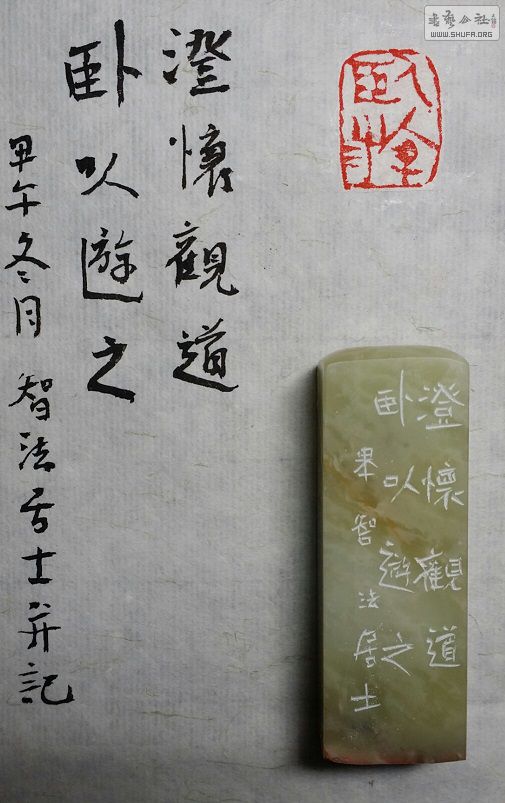 澄懷觀道
卧以遊之
甲午冬月 智法居士并記
澄懷觀道
卧以遊之
果智法居士
書藝公社
WWW.SHUFA.ORG